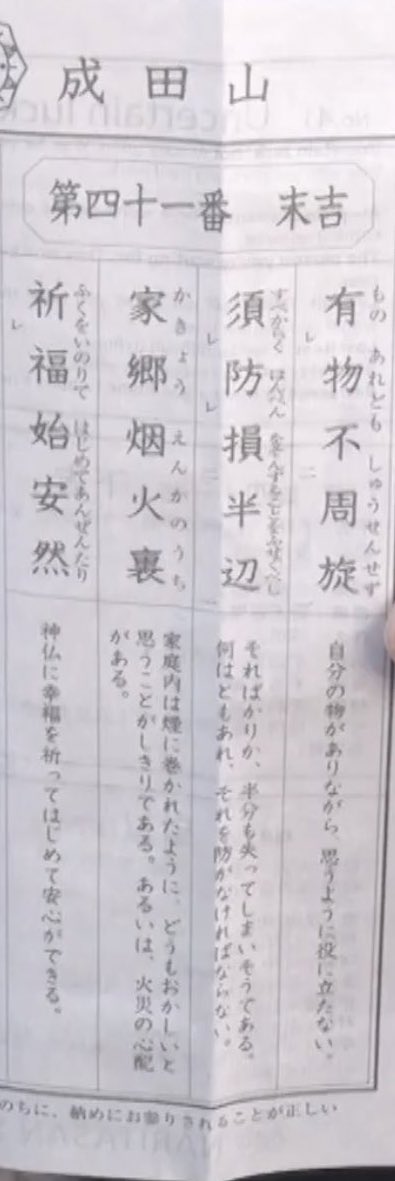 成田山
第四十一番　末吉
もの あれども しゅうせんせず
有物不周旋
レ 二
すべからく はんぺん をそんすることをふせぐべし
須防損半辺
レ レ 二 一
かきょう えんかのうち
家郷烟火裏
ふくをいのりて はじめてあんぜんたり
祈福始安然
レ
自分の物がありながら、思うように役に立たない。
そればかりか、半分も失ってしまいそうである。
何はともあれ、それを防がなければならない。
家庭内は煙に巻かれたように、どうもおかしいと
思うことがしきりである。あるいは、火災の心配
がある。
神仏に幸福を祈ってはじめて安心ができる。
のちに、納めにお参りされることが正しい